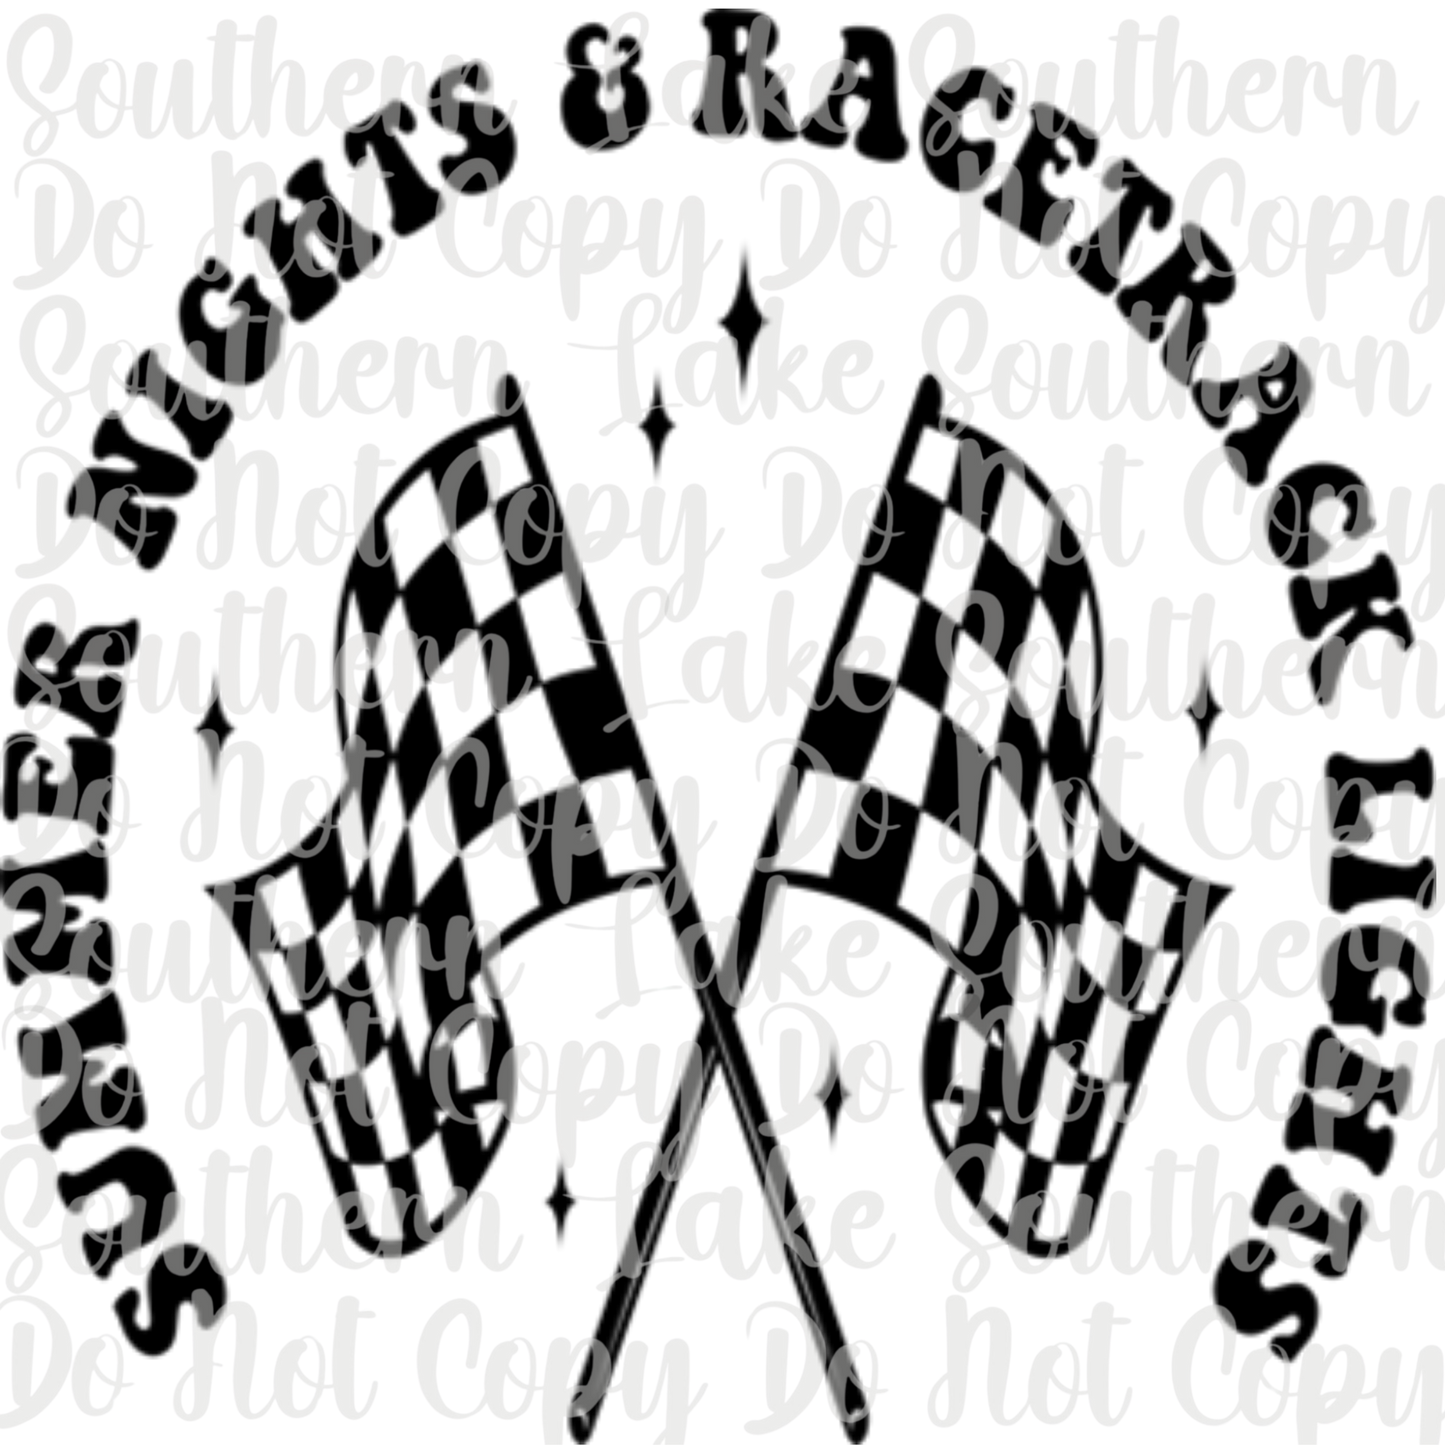 SUMMER NIGHTS & RACETRACK LIGHTS
Southern Lake Southern
Do Not Copy Do Not Copy
Southern Lake Southern
Do Not Copy Do Not Copy
Southern Lake Southern
Do Not Copy Do Not Copy
Southern Lake Southern
Do Not Copy Do Not Copy
Southern Lake Southern
Do Not Copy Do Not Copy